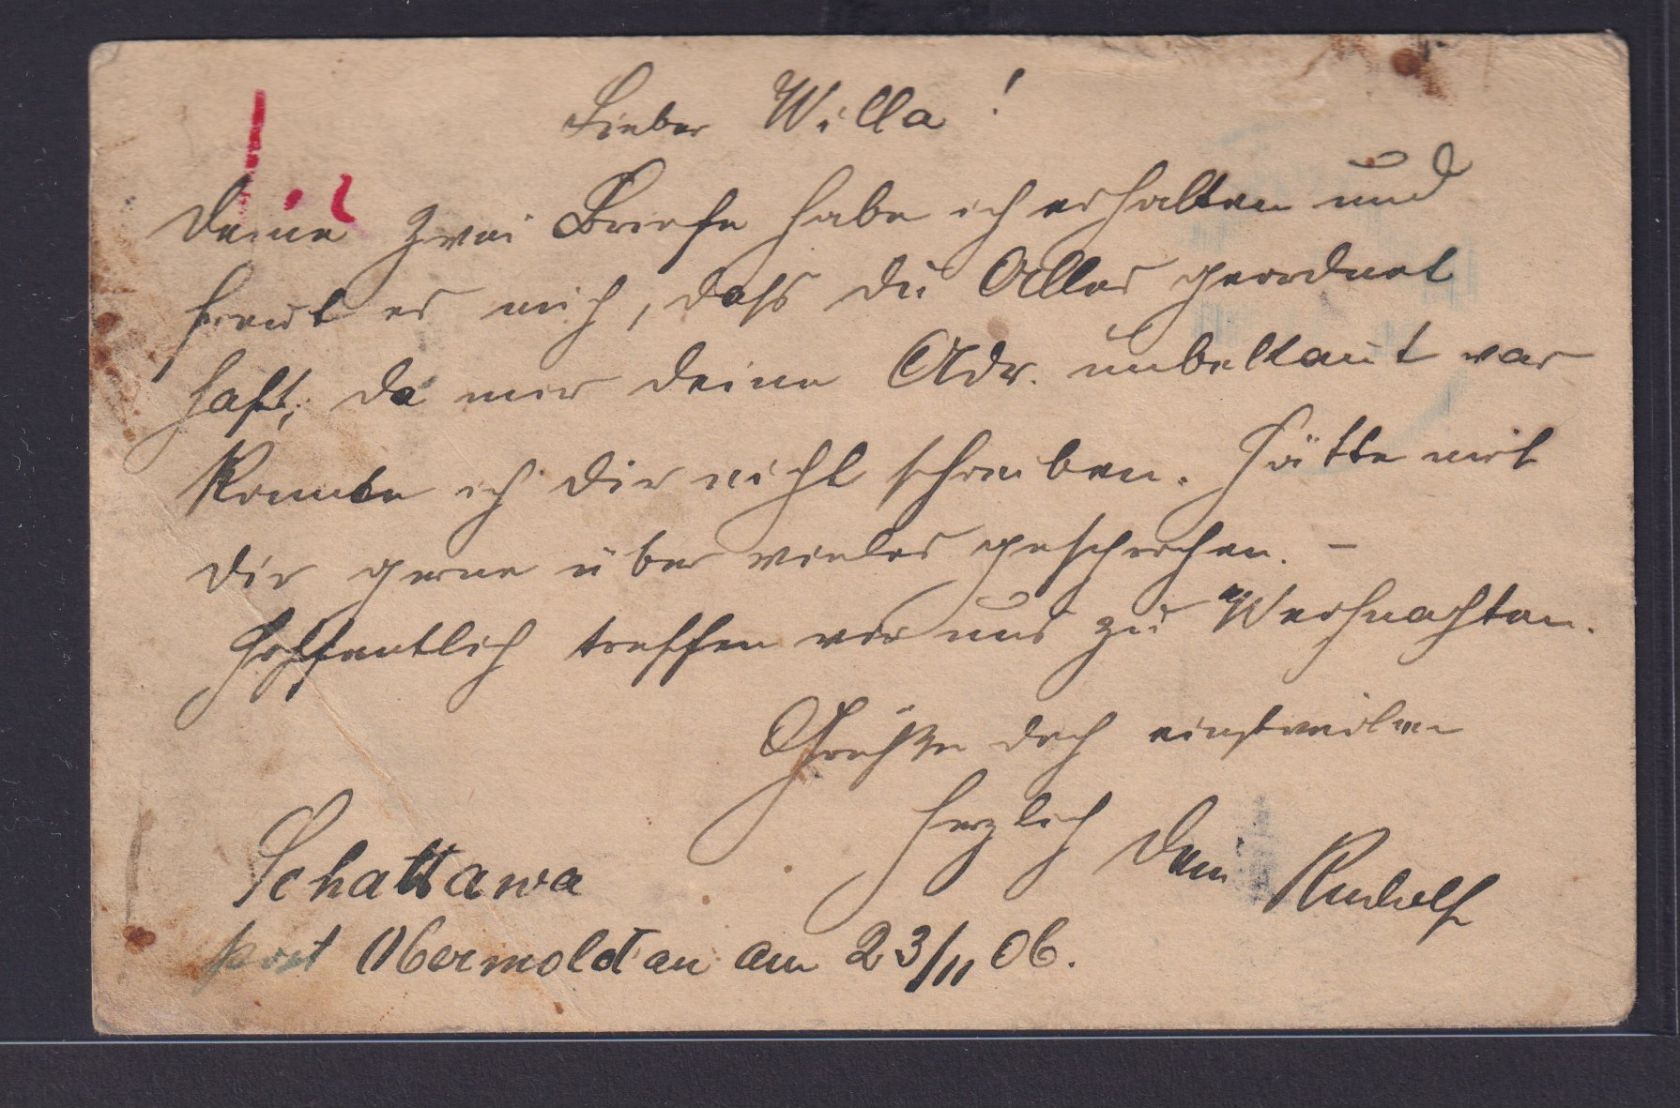 Lieber Willa!
Deine zwei Briefe habe ich erhalten und
freut es mich, dass du Alles geordnet
hast, da mir deine Adr. unbekannt war
konnte ich dir nicht schreiben. Hätte mit
dir gerne über vieles gesprochen. –
Hoffentlich treffen wir uns zu Weihnachten.
Grüße dich einstweilen
herzlich Dein Rudolf
Schattawa
post Obermoldau am 23/11 06.